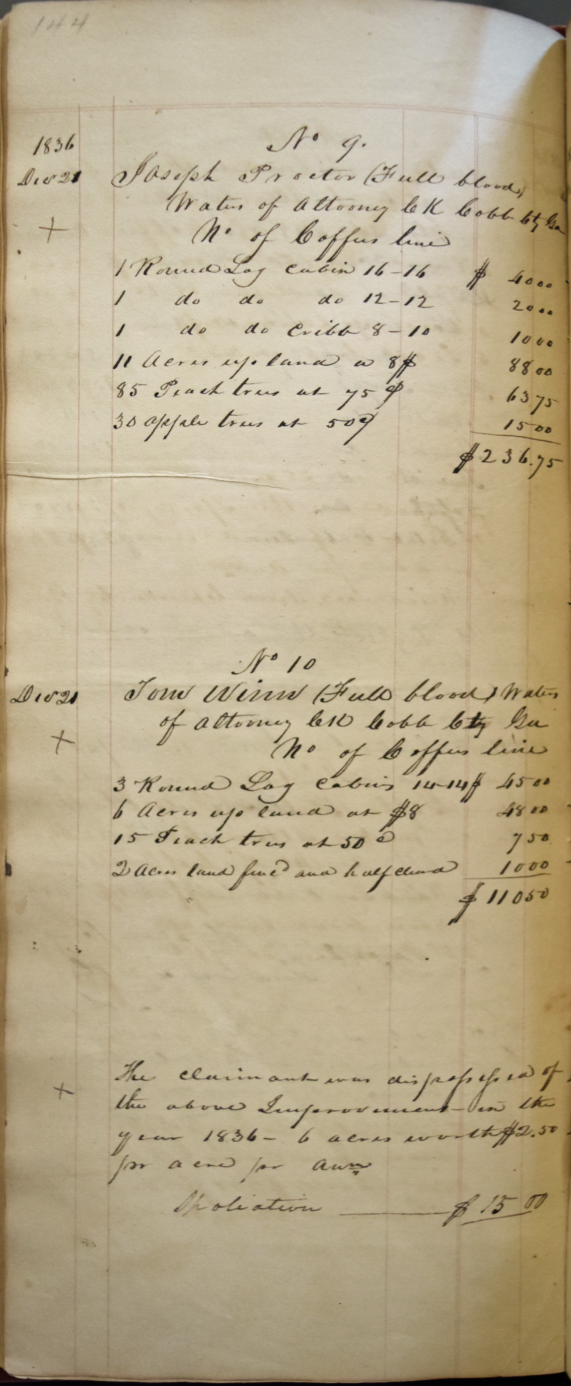 144
1836
No 9.
Decr 21 Joseph Proctor (Full blood)
Waters of Attorney CK Cobb Cty Ga
No of Coffees line
1 Round Log cabin 16-16 $ 40 00
1 do do do 12-12 20 00
1 do do Cribb 8-10 10 00
11 Acres up land a 8$ 88 00
85 Peach trees at 75 ¢ 63 75
30 apple trees at 50¢ 15 00
$236.75
No 10
Decr 21 Tom Winn (Full blood) Waters
of Attorney CK Cobb Cty Ga
No of Coffees line
3 Round Log Cabins 14-14 $ 45 00
6 Acres up land at $8 48 00
15 Peach trees at 50 ¢ 7 50
2 Acres land fencd and half cleard 10 00
$ 110 50
The claimant was dispossessed of
the above Improvement in the
year 1836 - 6 acres worth $2.50
pr acre pr Anm
Spoliation $ 15 00